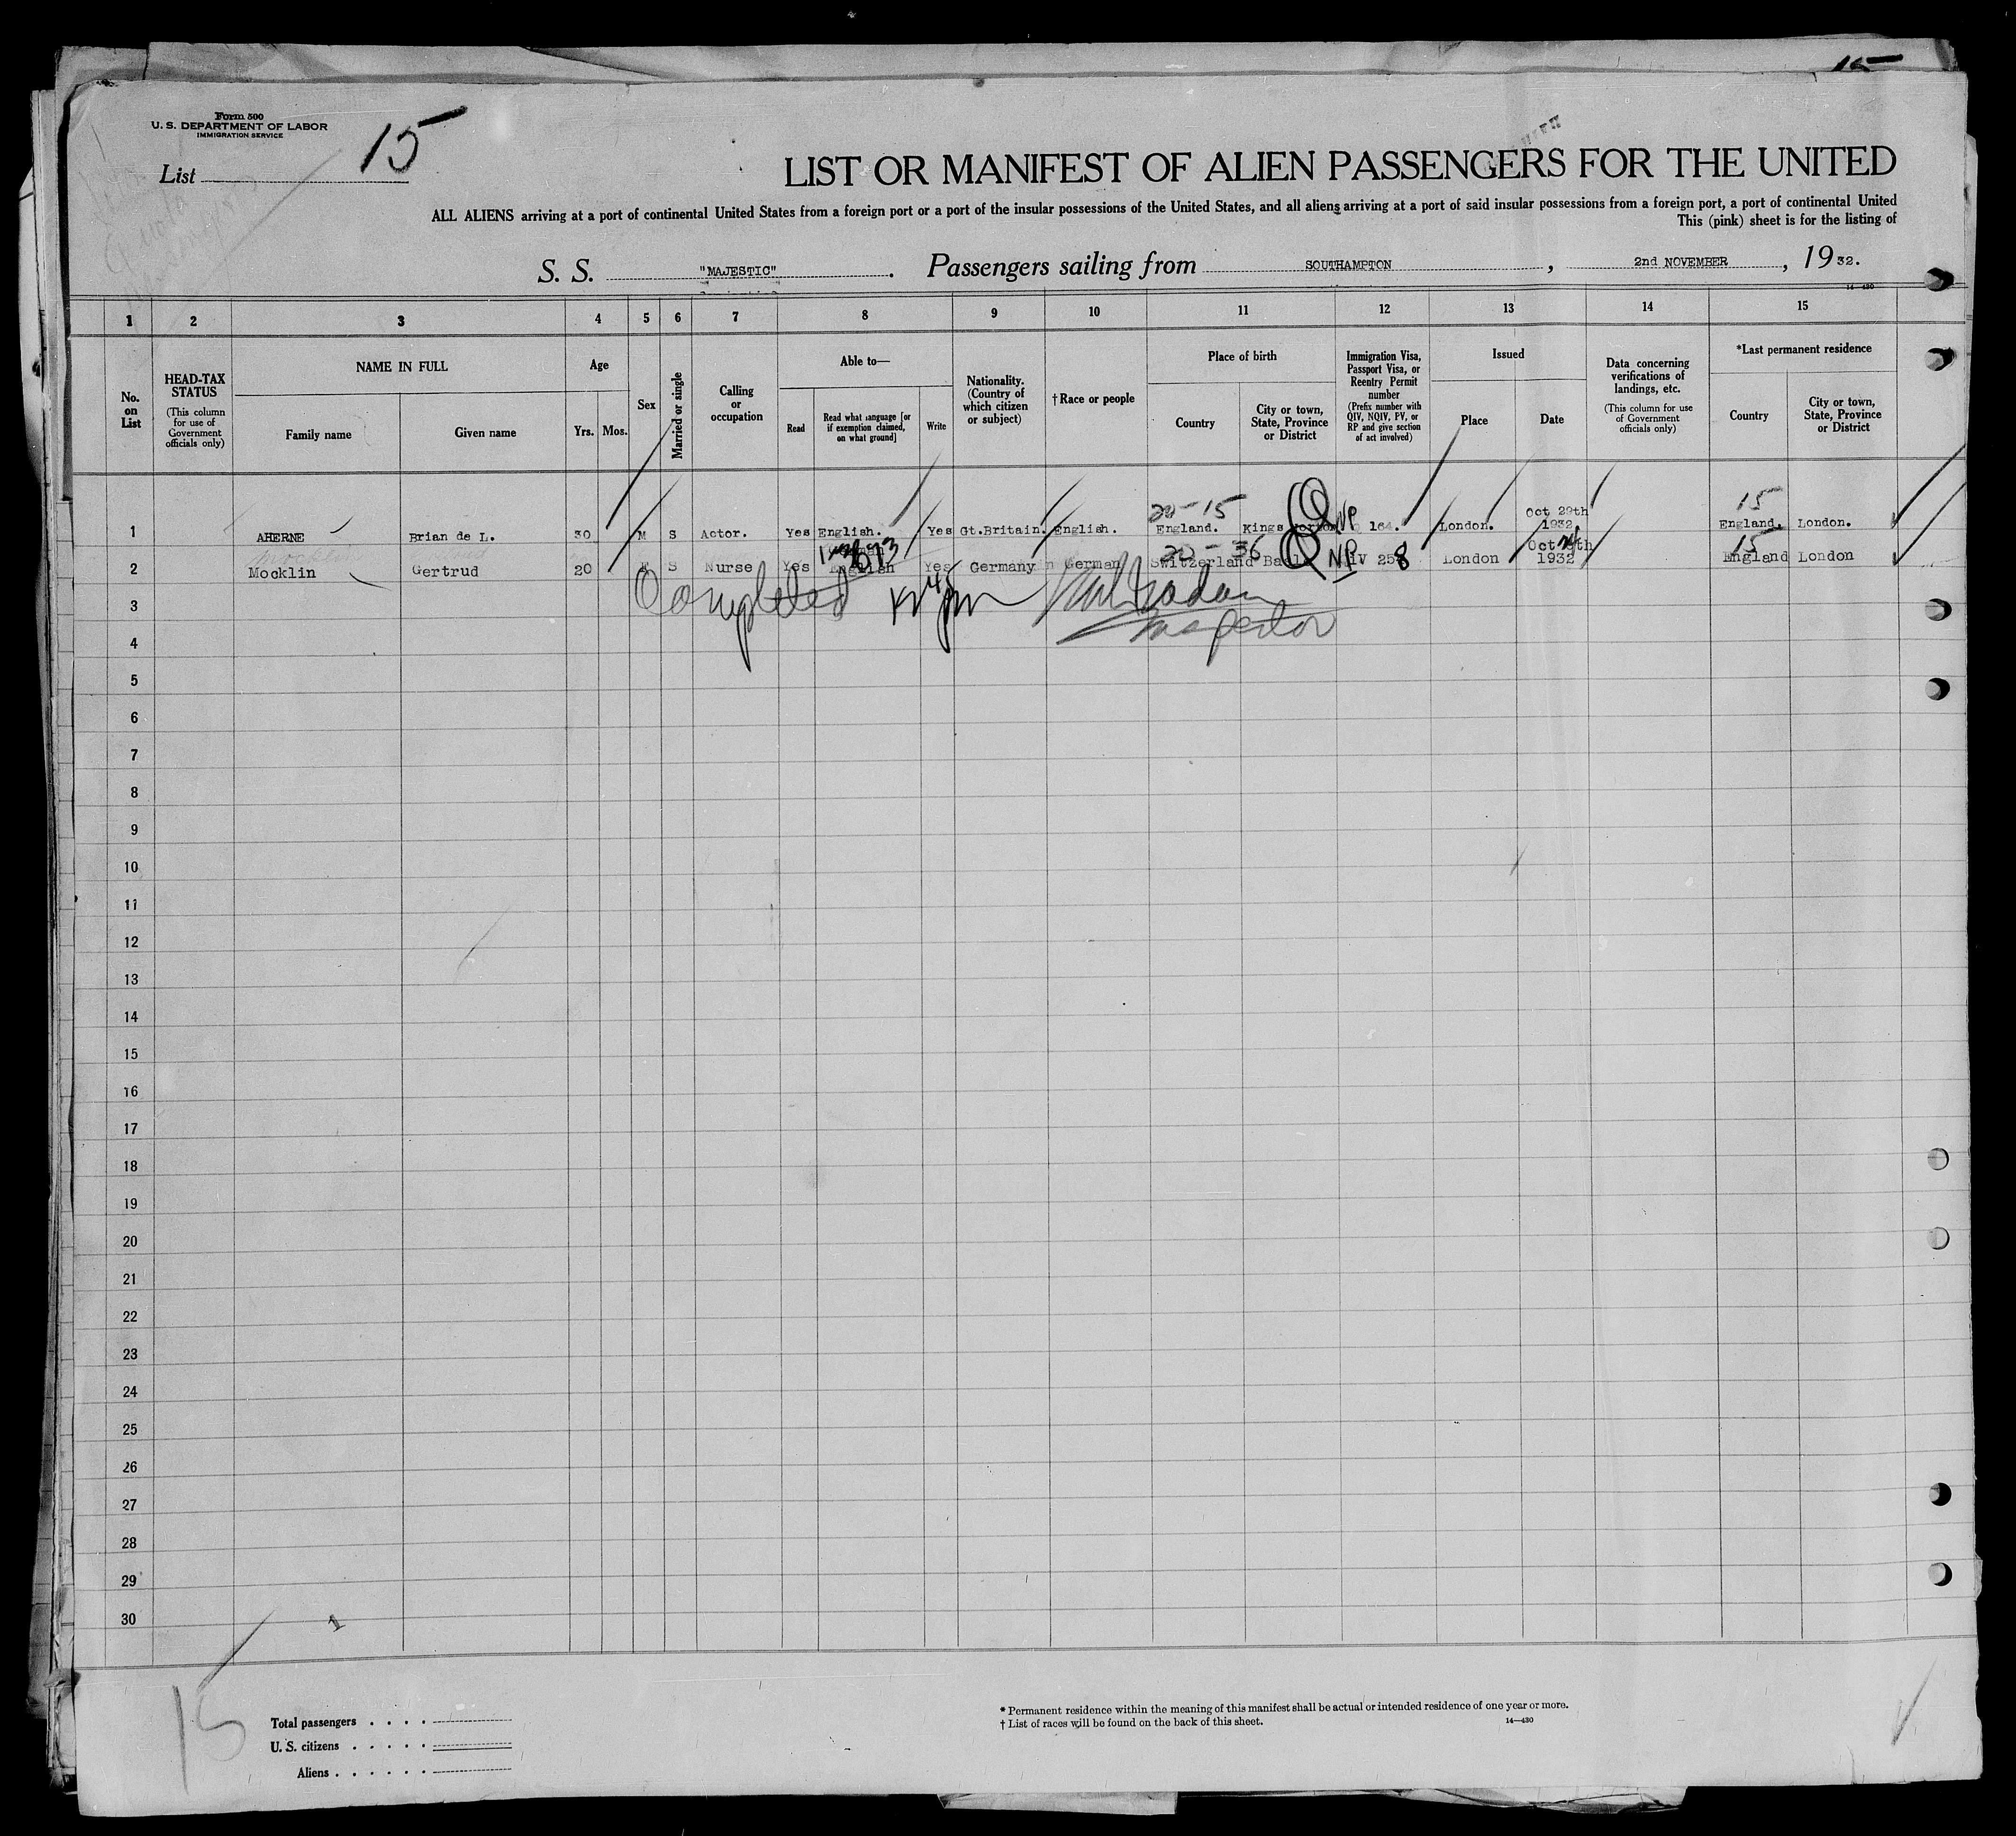 15
Form 500
U. S. DEPARTMENT OF LABOR
IMMIGRATION SERVICE
List 15
LIST OR MANIFEST OF ALIEN PASSENGERS FOR THE UNITED
ALL ALIENS arriving at a port of continental United States from a foreign port or a port of the insular possessions of the United States, and all aliens arriving at a port of said insular possessions from a foreign port, a port of continental United
This (pink) sheet is for the listing of
S. S. "MAJESTIC" . Passengers sailing from SOUTHAMPTON , 2nd NOVEMBER , 1932.
14—430
1 2 3 4 5 6 7 8 9 10 11 12 13 14 15
No. on List
HEAD-TAX STATUS
(This column for use of Government officials only)
NAME IN FULL
Family name
Given name
Age
Yrs.
Mos.
Sex
Married or single
Calling or occupation
Able to—
Read
Read what language [or if exemption claimed, on what ground]
Write
Nationality. (Country of which citizen or subject)
† Race or people
Place of birth
Country
City or town, State, Province or District
Immigration Visa, Passport Visa, or Reentry Permit number
(Prefix number with QIV, NQIV, PV, or RP and give section of act involved)
Issued
Place
Date
Data concerning verifications of landings, etc.
(This column for use of Government officials only)
*Last permanent residence
Country
City or town, State, Province or District
20-15 15
1 AHERNE Brian de L. 30 M S Actor. Yes English. Yes Gt.Britain. English. England. Kings Q NP 164. London. Oct 29th 1932 England. London.
20-36 15
2 Mocklin Gertrud 20 F S Nurse Yes English Yes Germany German Switzerland Q NP IV 258 London Oct 1932 England London
Completed
Inspector
3
4
5
6
7
8
9
10
11
12
13
14
15
16
17
18
19
20
21
22
23
24
25
26
27
28
29
30
1
15
Total passengers . . . .
U. S. citizens . . . . .
Aliens . . . . . .
* Permanent residence within the meaning of this manifest shall be actual or intended residence of one year or more.
† List of races will be found on the back of this sheet.
14—430